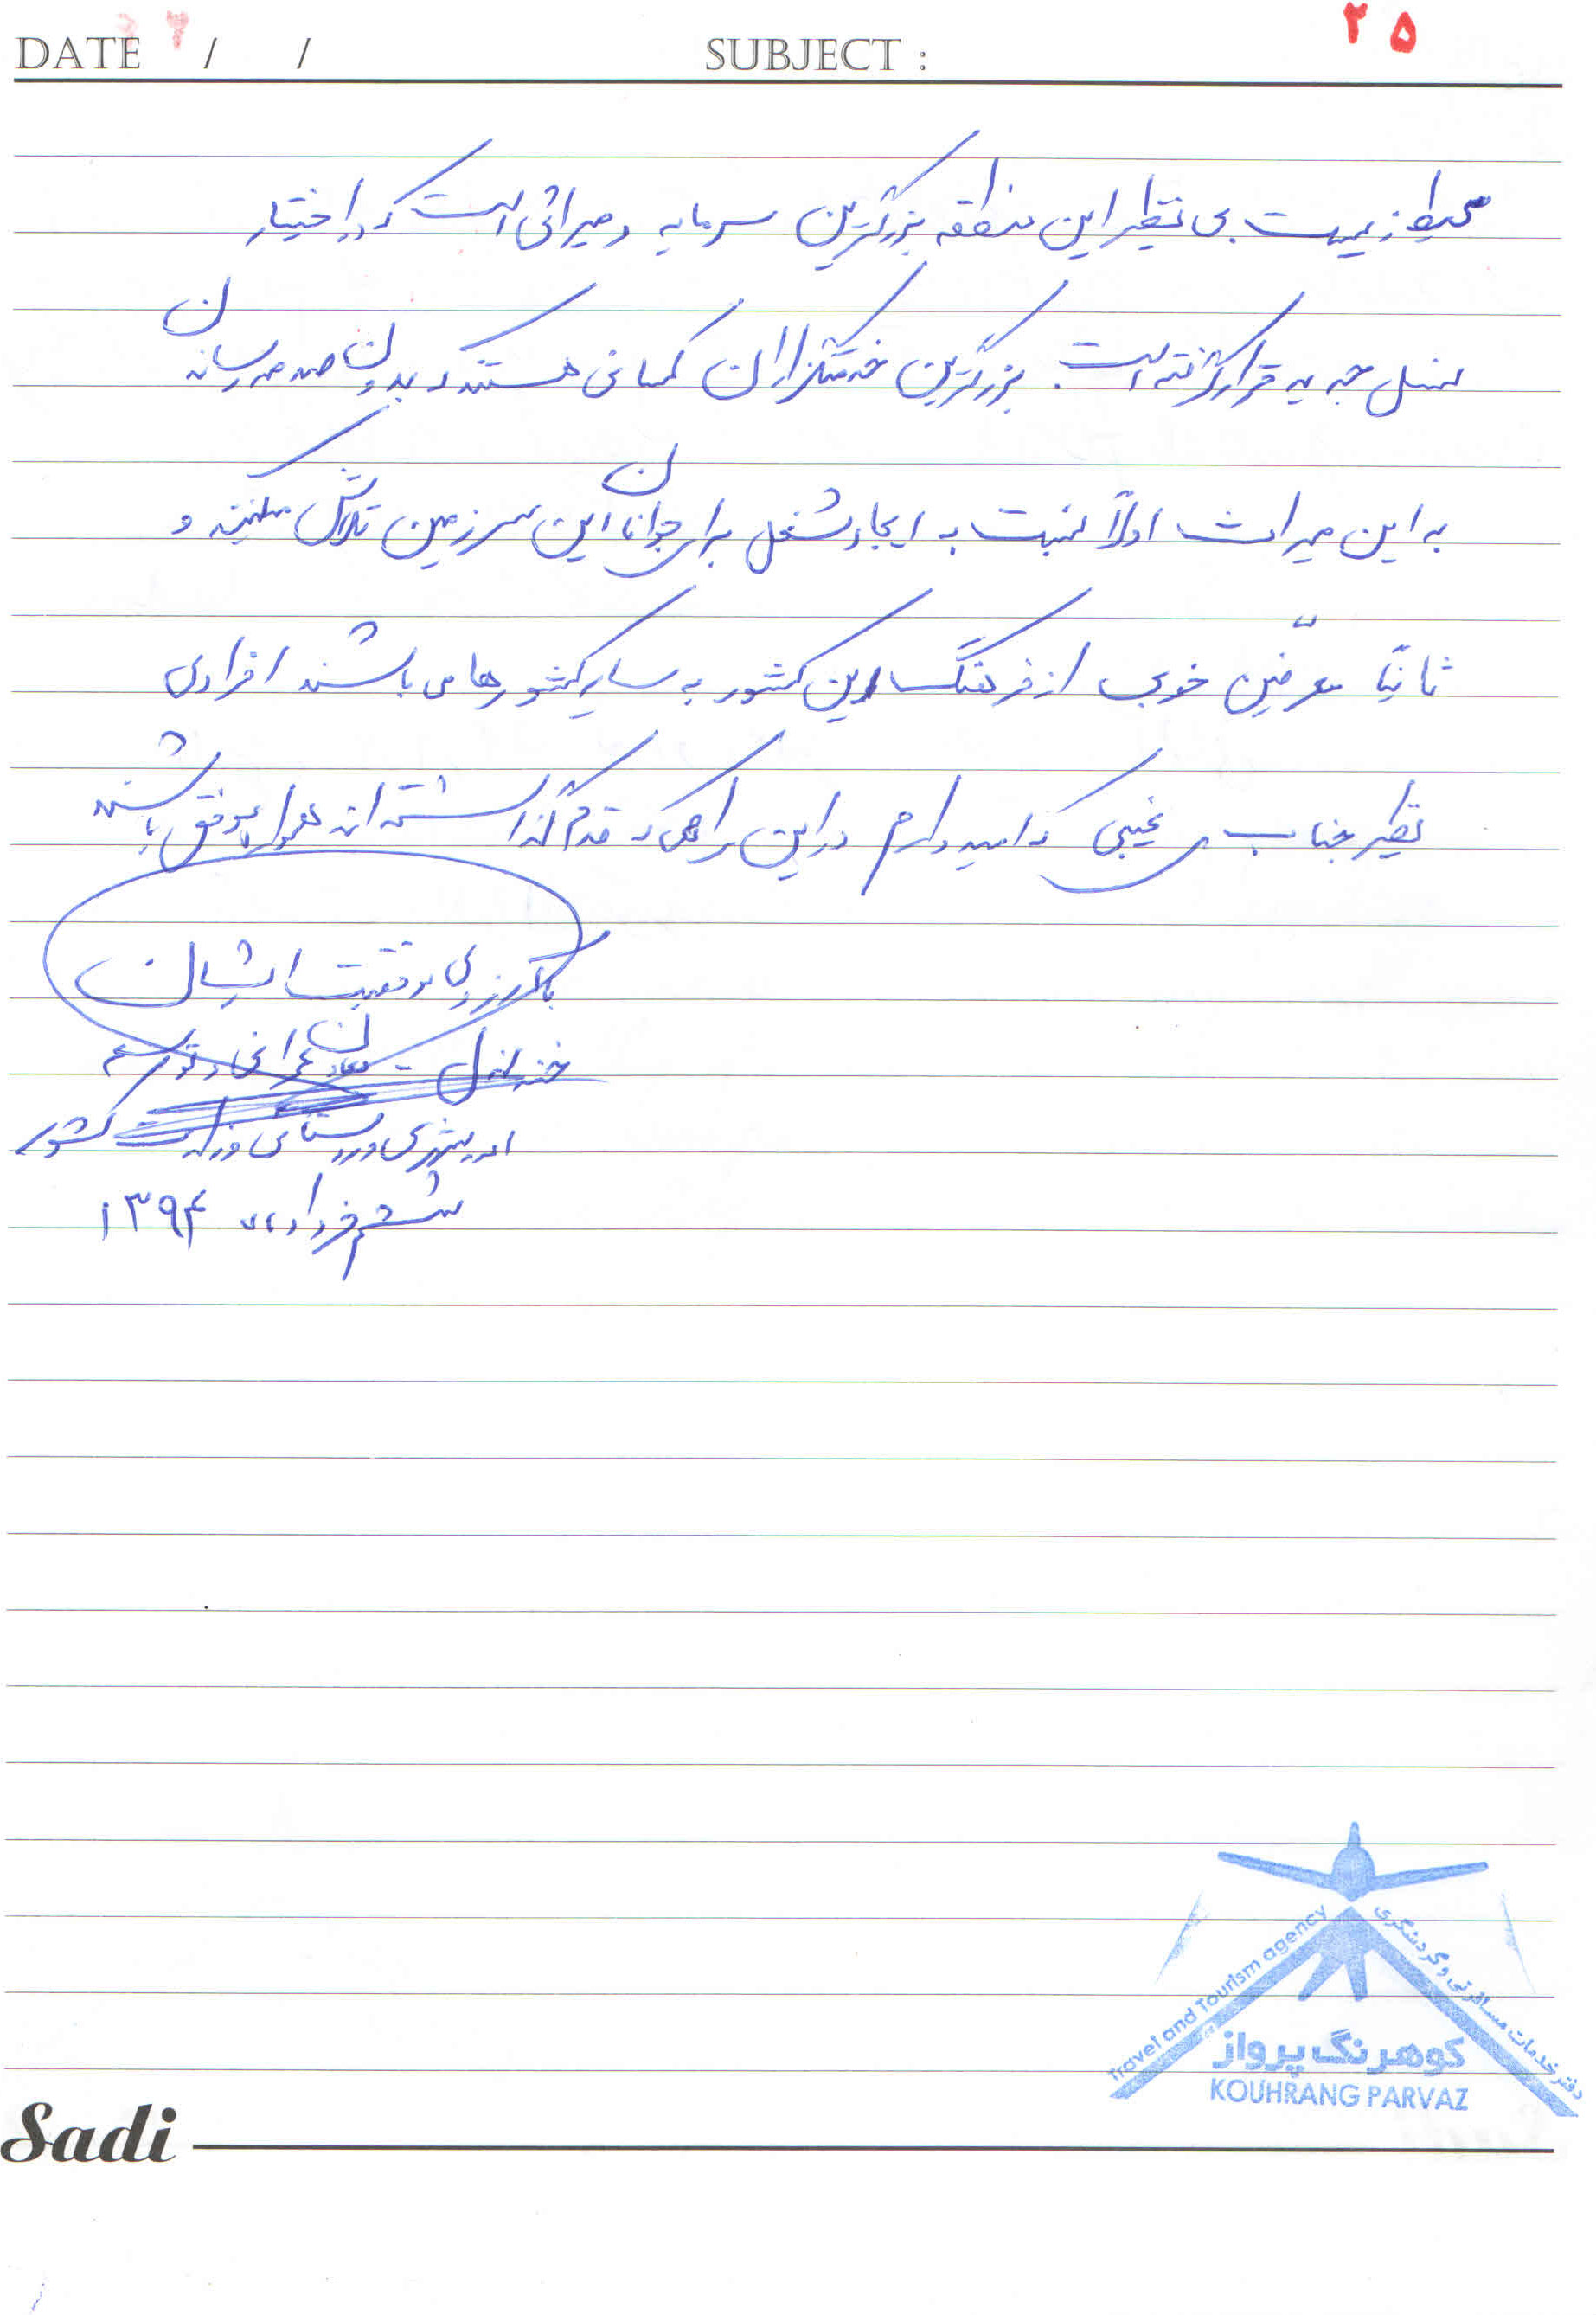 ۲۵
DATE / / SUBJECT :
محیط زیست بی نظیر این منطقه بزرگترین سرمایه و میراثی است که در اختیار
نسل جدید قرار گرفته است. بزرگترین خدمتگزاران کسانی هستند که بدون صدمه رساندن
به این میراث اولاً نسبت به ایجاد شغل برای جوانان این سرزمین تلاش میکنند و
ثانیاً معرّفین خوبی از فرهنگ این کشور به سایر کشورها می باشند افرادی
نظیر جناب غیبی که امیدوارم در این راهی که قدم گذاشته اند همواره موفق باشند
با آرزوی موفقیت ایشان
معاون عمرانی و توسعه
امور شهری و روستایی وزارت کشور
ششم خرداد ۱۳۹۴
Travel and Tourism agency
دفتر خدمات مسافرتی و گردشگری
کوهرنگ پرواز
KOUHRANG PARVAZ
Sadi